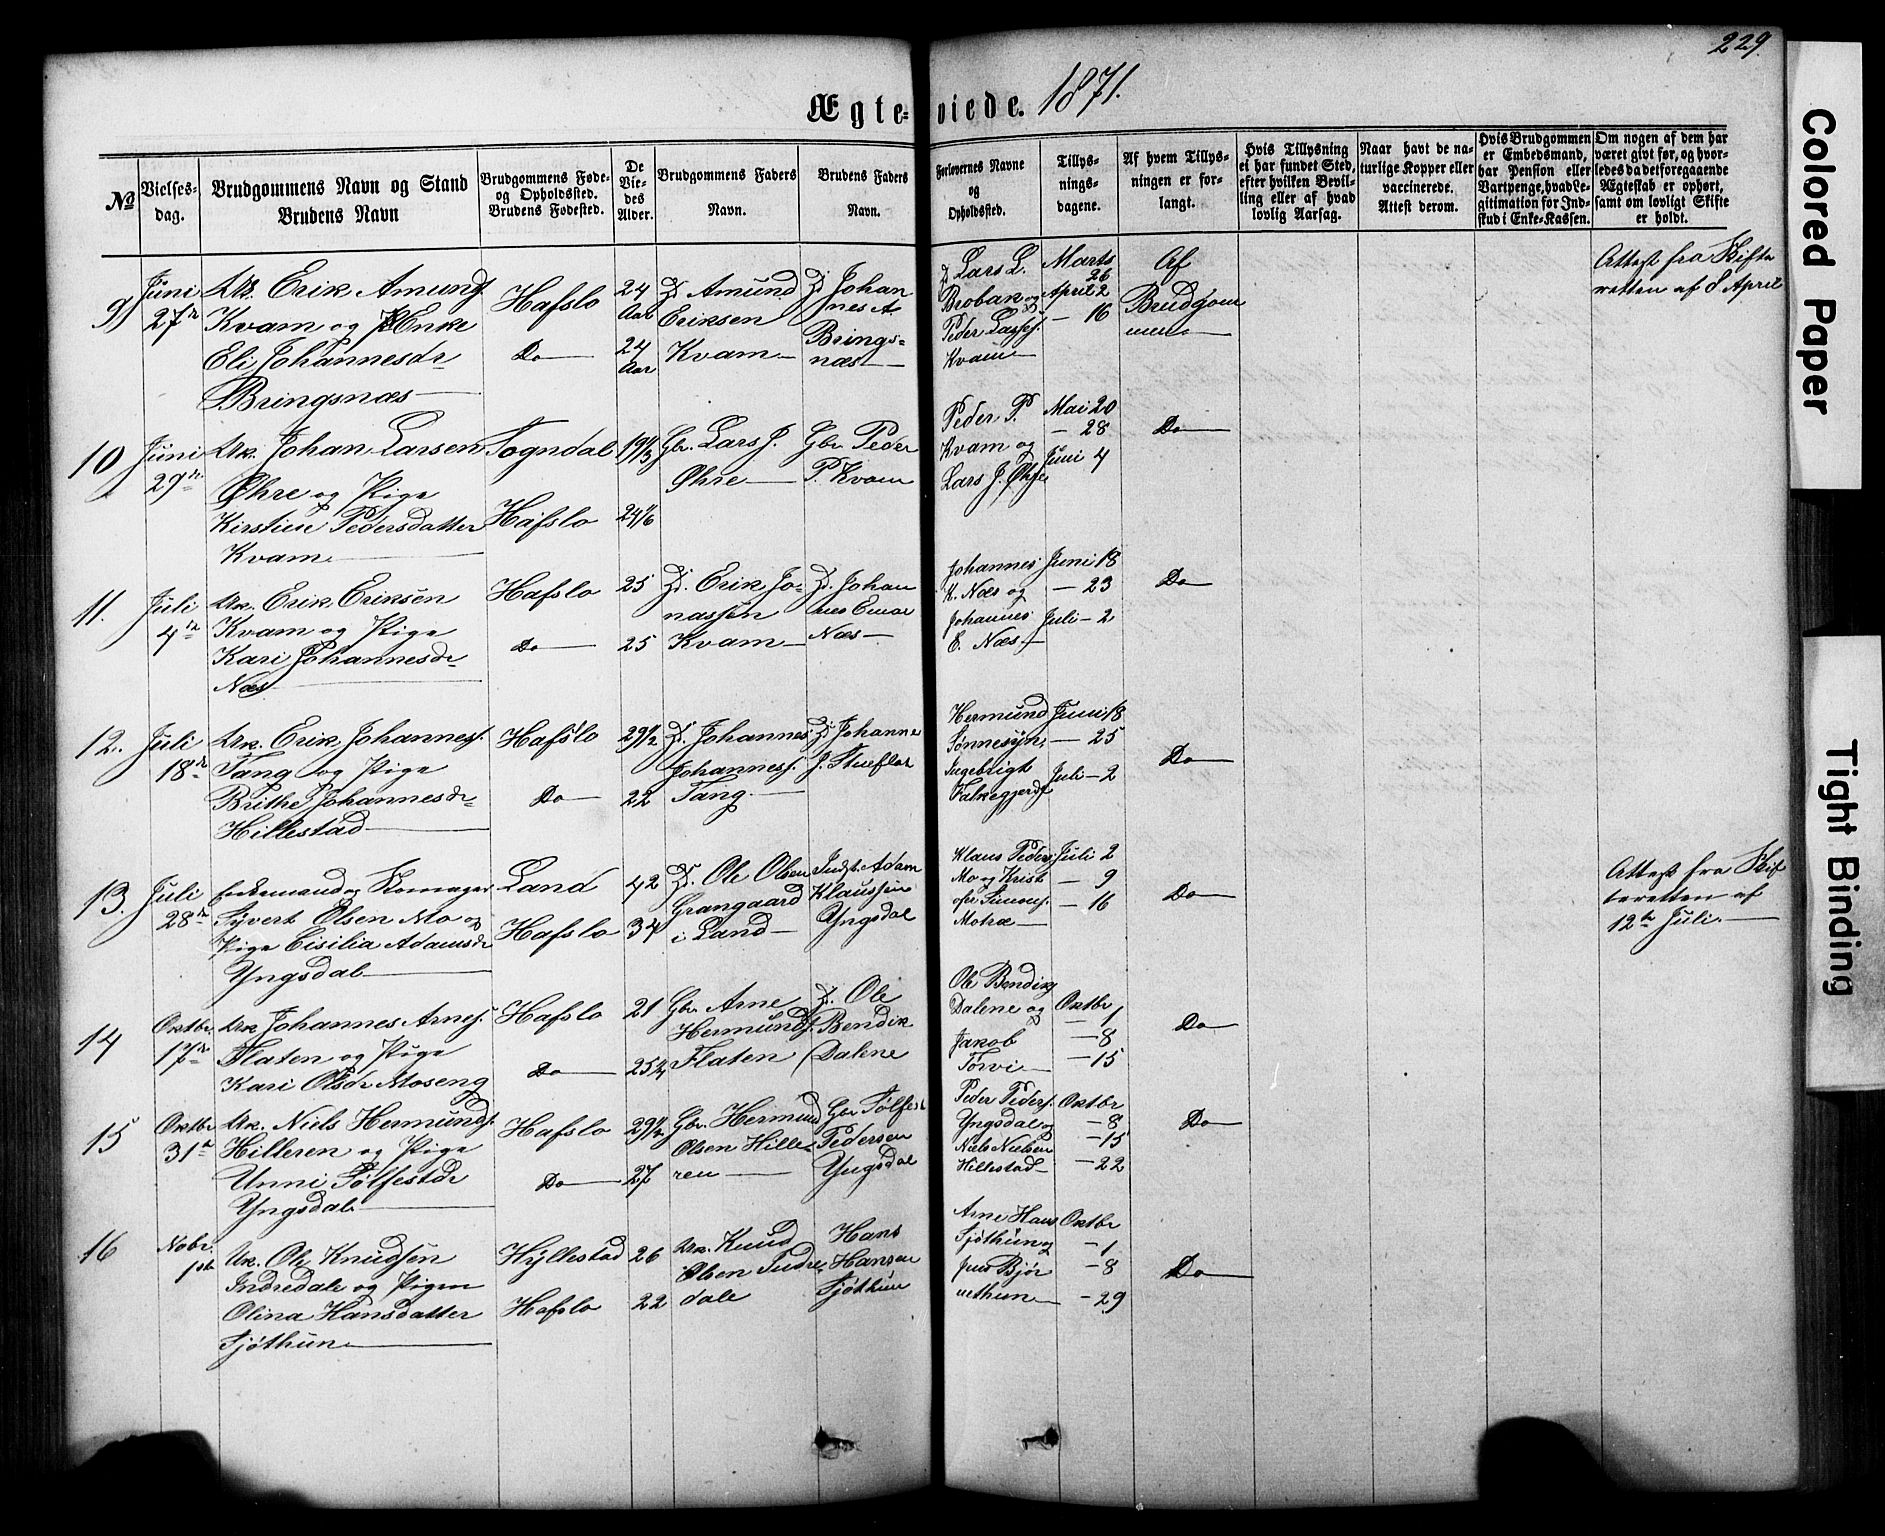 229.
Ægte-viede. 1871.
No
Vielses-dag.
Brudgommens Navn og Stand
Brudens Navn
Brudgommens Føde- og Opholdssted.
Brudens Fødested.
De Vie-des Alder.
Brudgommens Faders Navn.
Brudens Faders Navn.
Forlovernes Navne og Opholdssted.
Tillys-nings-dagene.
Af hvem Tillys-ningen er for-langt.
Hvis Tillysning ei har fundet Sted, efter hvilken Bevil-ling eller af hvad lovlig Aarsag.
Naar havt de na-turlige Kopper eller vaccinerede. Attest derom.
Hvis Brudgommen er Embedsmand, har Pension eller Vartpenge, hvad Le-gitimation for Ind-skud i Enke-Kassen.
Om nogen af dem har været givt før, og hvor-ledes da det foregaaende Ægteskab er ophørt, samt om lovligt Skifte er holdt.
9) Juni 27de
Uk. Erik Amunds.
Kvam og Enke
Eli Johannesdr
Bringsnæs
Hafslo
Do
24 Aar
24 Aar
Amund
Eriksen
Kvam
Johan
nes A
Brings-
næs
Lars L.
Broban og
Peder Lasses.
Kvam
Marts 26
April 2
— 16
Af
Brudgom
mene
Attest fra Skifte
retten af 8 April
10 Juni 29de
Uk. Johan Larsen
Øhre og Pige
Kirstine Pedersdatter
Kvam
Sogndal
Hafslo
19 1/3
24 1/6
Gbr. Lars J.
Øhre
Gbr Peder
P. Kvam
Peder P.
Kvam og
Lars J. Øhre
Mai 20
— 28
Juni 4
Do
11. Juli 4de
Uk. Erik Eriksen
Kvam og Pige
Kari Johannesdr
Næs
Hafslo
Do
25
25
Erik Jo-
nassen
Kvam
Johan
nes Einar
Næs
Johannes
K. Næs og
Johannes
E. Næs
Juni 18
— 23
Juli — 2
Do
12. Juli 18de
Uk. Erik Johannes.
Tang og Pige
Brithe Johannesdr
Hillestad
Hafslo
Do
29 1/2
22
Johannes
Johanness.
Tang
Johanne
J.
Hermund
Sønnesyn,
Ingebrigt
Falkegjerd
Juni 18
— 25
Juli — 2
Do
13. Juli 28de
Enkemand og Skomager
Syvert Olsen Mo og
Pige Cisilia Adamsdr
Yngsdal
Land
Hafslo
42
34
Ole Olsen
Grangaard
i Land
Indst. Adam
Klaussen
Yngsdal
Klaus Peders
Mo og Krist
ofer Simons.
Molræ
Juli 2
— 9
— 16
Do
Attest fra Skif
teretten af
12te Juli.
14 Oktbr 17de
Uk Johannes Arnes.
Flaten og Pige
Kari Olsdr Moseng
Hafslo
Do
21
25 1/4
Gbr Arne
Hermunds.
Flaten
Ole
Bendik
Dalene
Ole Bendik
Dalene og
Jakob
Torvi
Oktbr
— 1
— 8
— 15
Do
15 Oktbr 31te
Uk. Niels Hermunds.
Hilleren og Pige
Unni Tølfestdr
Yngsdal
Hafslo
Do
29 1/2
27
Gbr. Hermund
Olsen Hille-
ren
Gbr Tølfest
Pedersen
Yngsdal
Peder Peders.
Yngsdal og
Niels Nielsen
Hillestad
Oktbr
— 8
— 15
— 22
Do
16 Nobr. 1ste
Uk. Ole Knudsen
Indredale og Pigen
Olina Hansdatter
Sjøthun
Hyllestad
Hafslo
26
22
Uk. Knud
Olsen Indre-
dale
Hans
Hansen
Sjøthun
Arne Hans
Sjøthun og
Jens Bjør
nethun
Oktbr
— 1
— 8
— 29
Do
Colored Paper
Tight Binding